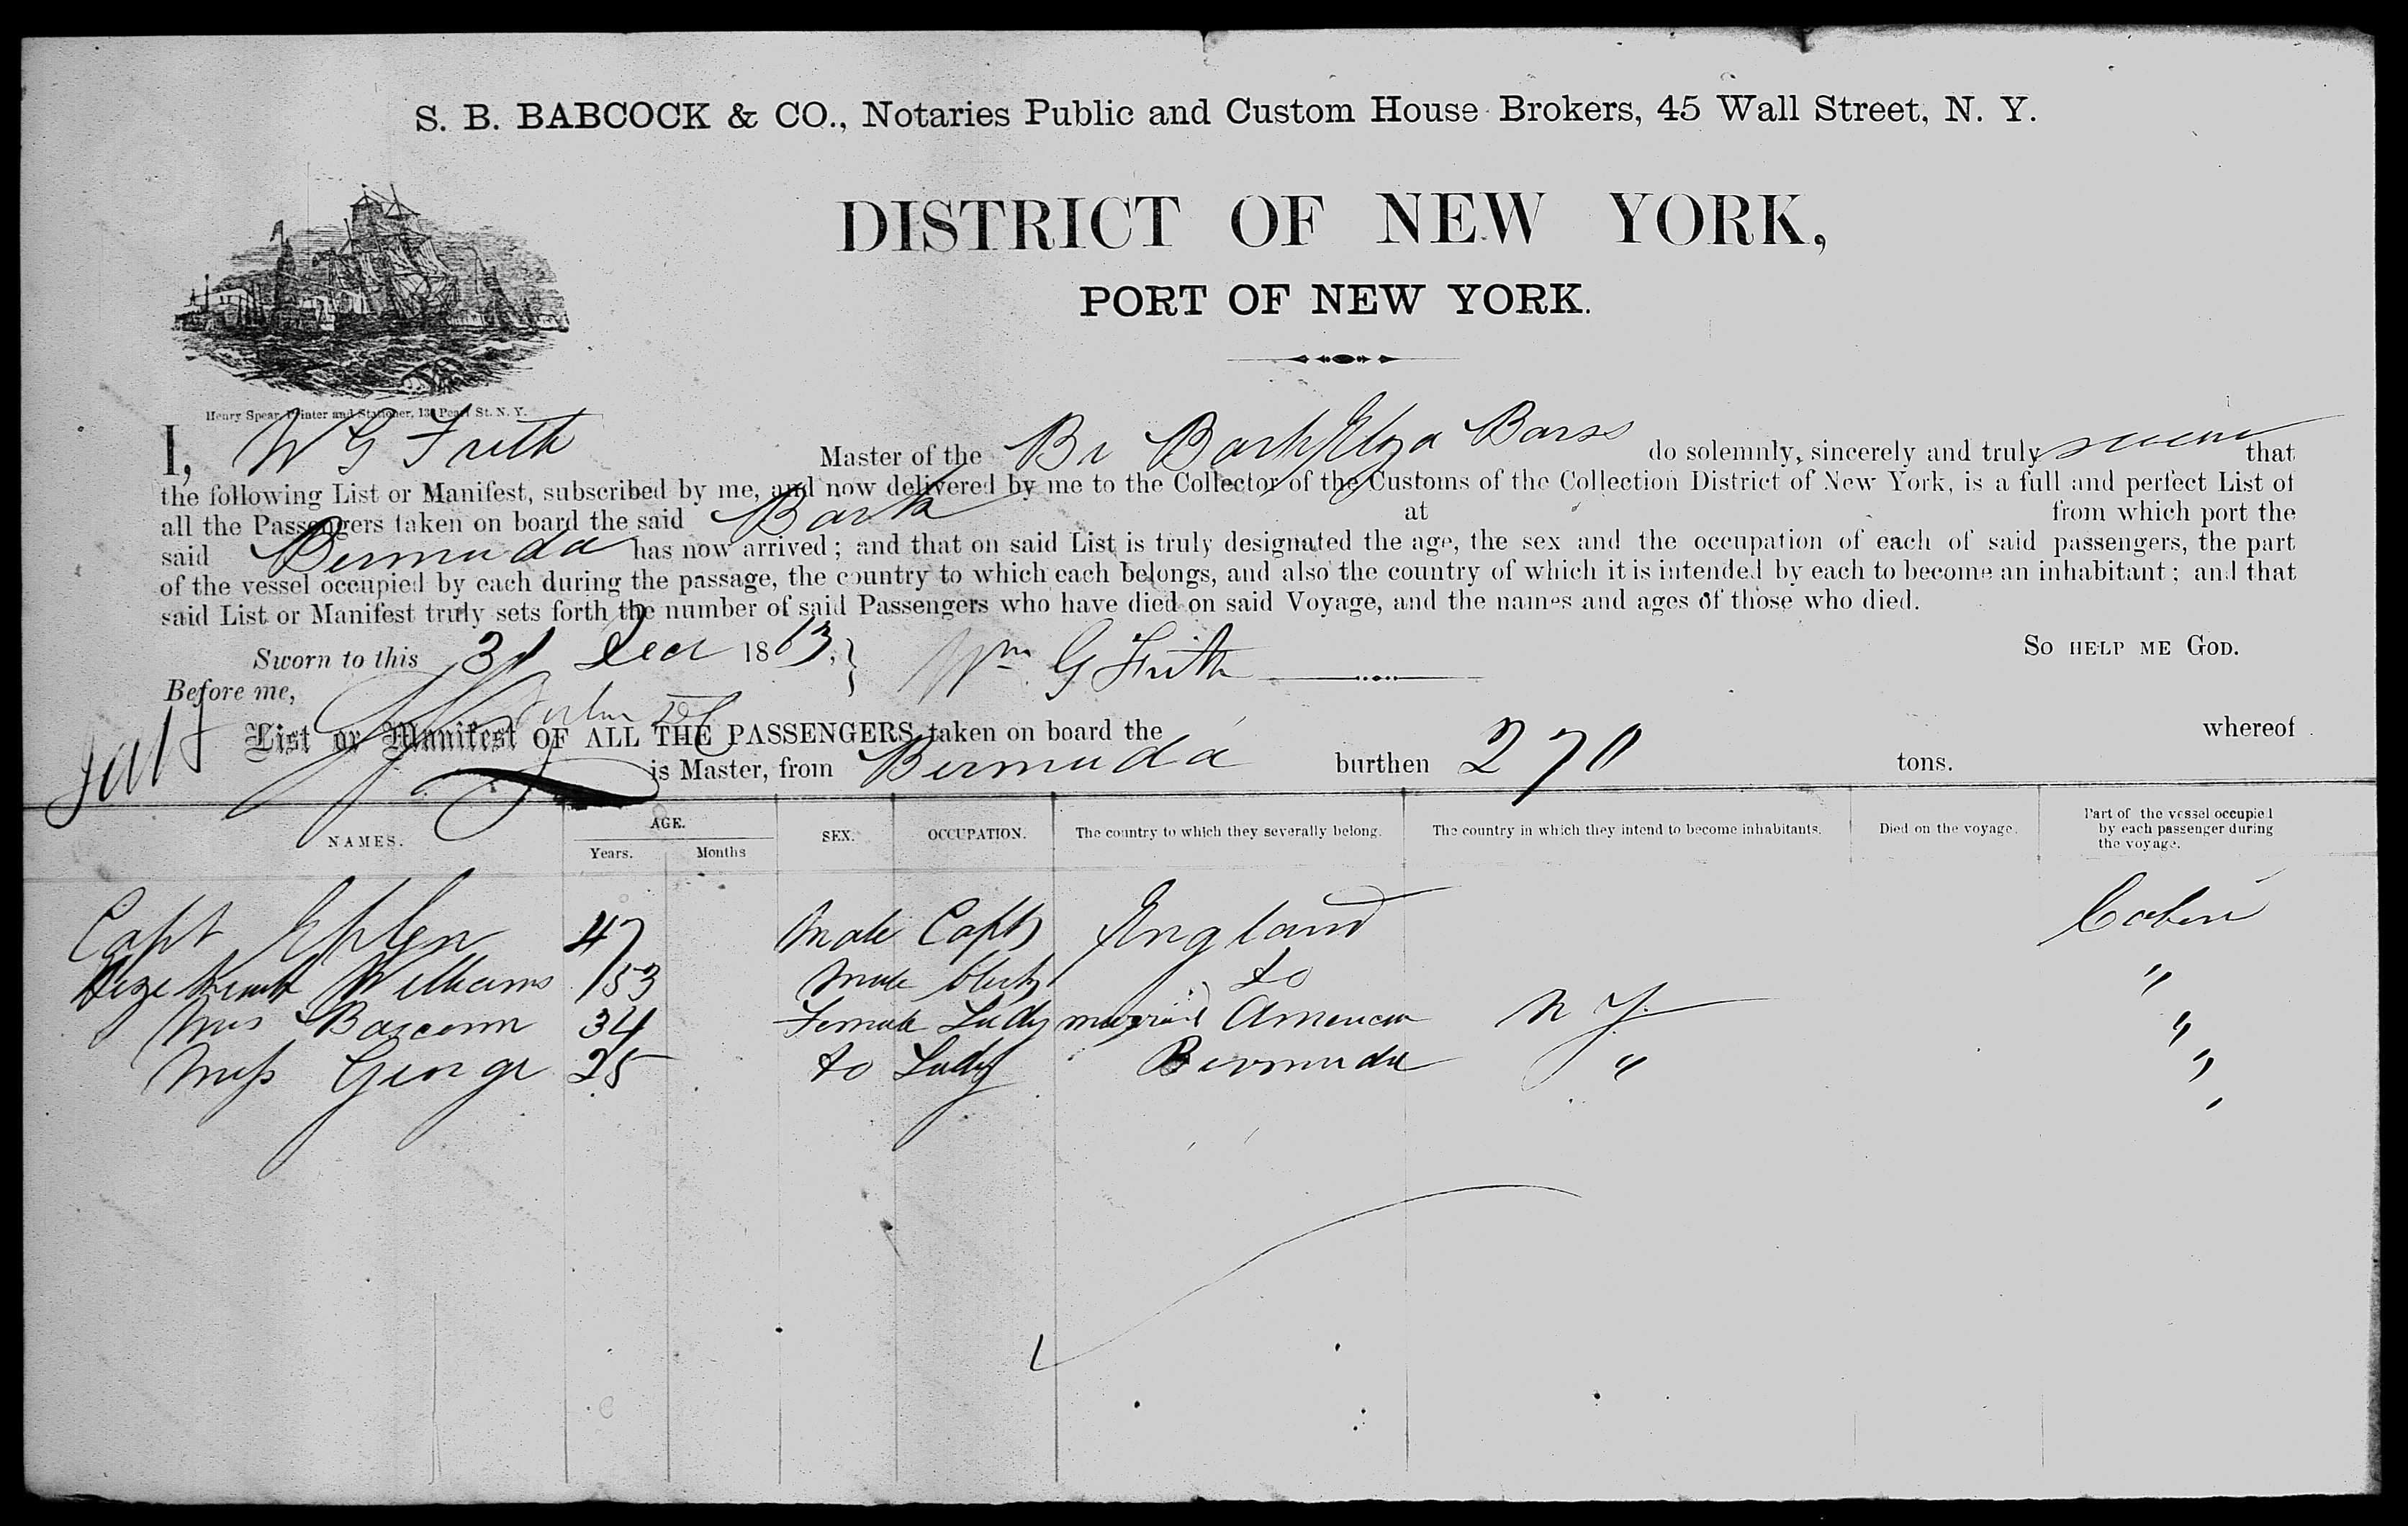 S. B. BABCOCK & CO., Notaries Public and Custom House Brokers, 45 Wall Street, N. Y.
DISTRICT OF NEW YORK,
PORT OF NEW YORK.
Henry Spear, Printer and Stationer, 13 Pearl St. N. Y.
I, W G Frith Master of the Br Bark Eliza Barss do solemnly, sincerely and truly swear that
the following List or Manifest, subscribed by me, and now delivered by me to the Collector of the Customs of the Collection District of New York, is a full and perfect List of
all the Passengers taken on board the said Bark at from which port the
said Bermuda has now arrived; and that on said List is truly designated the age, the sex and the occupation of each of said passengers, the part
of the vessel occupied by each during the passage, the country to which each belongs, and also the country of which it is intended by each to become an inhabitant; and that
said List or Manifest truly sets forth the number of said Passengers who have died on said Voyage, and the names and ages of those who died.
Sworn to this 31 Dec 1863, } Wm G Frith So HELP ME GOD.
Before me,
List or Manifest OF ALL THE PASSENGERS taken on board the whereof
is Master, from Bermuda burthen 270 tons.
NAMES. AGE. Years. Months SEX. OCCUPATION. The country to which they severally belong. The country in which they intend to become inhabitants. Died on the voyage. Part of the vessel occupied by each passenger during the voyage.
Capt 47 Male Capt England Cabin
Williams 53 Male do "
Mrs Bascom 34 Female Lady married American N Y "
Miss George 25 do Lady Bermuda " "